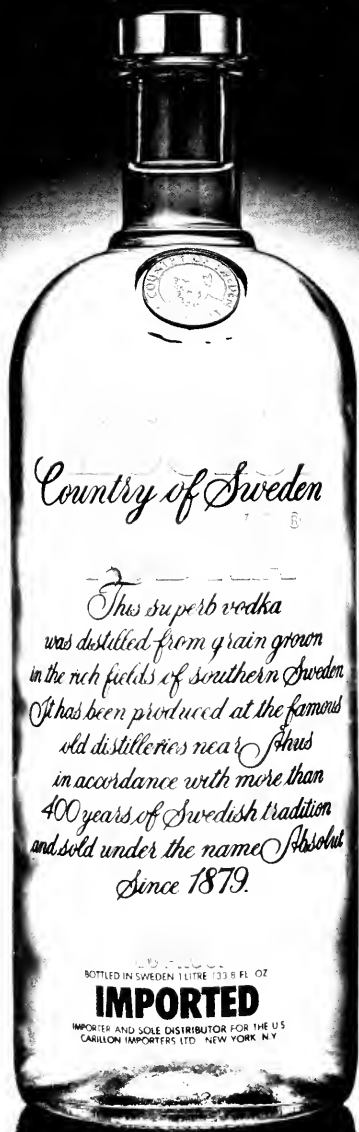 COUNTRY OF SWEDEN
Country of Sweden
This superb vodka
was distilled from grain grown
in the rich fields of southern Sweden
It has been produced at the famous
old distilleries near Åhus
in accordance with more than
400 years of Swedish tradition
and sold under the name Absolut
Since 1879.
BOTTLED IN SWEDEN 1 LITRE (33.8 FL OZ
IMPORTED
IMPORTER AND SOLE DISTRIBUTOR FOR THE U S
CARILLON IMPORTERS LTD NEW YORK N.Y